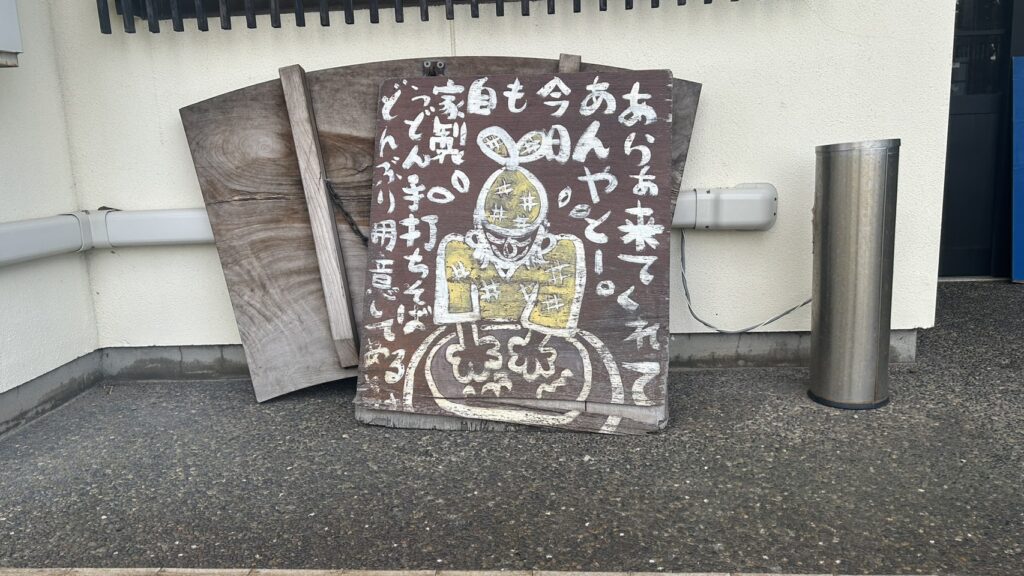 あらぁ来てくれて
あんやとー。
今日
も
自
家製。
うどん手打ちそば
どんぶり用意してある